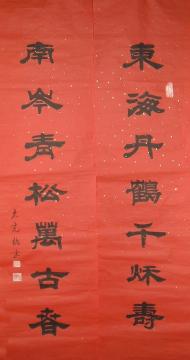 東海丹鶴千秌壽
南岑青松萬古春